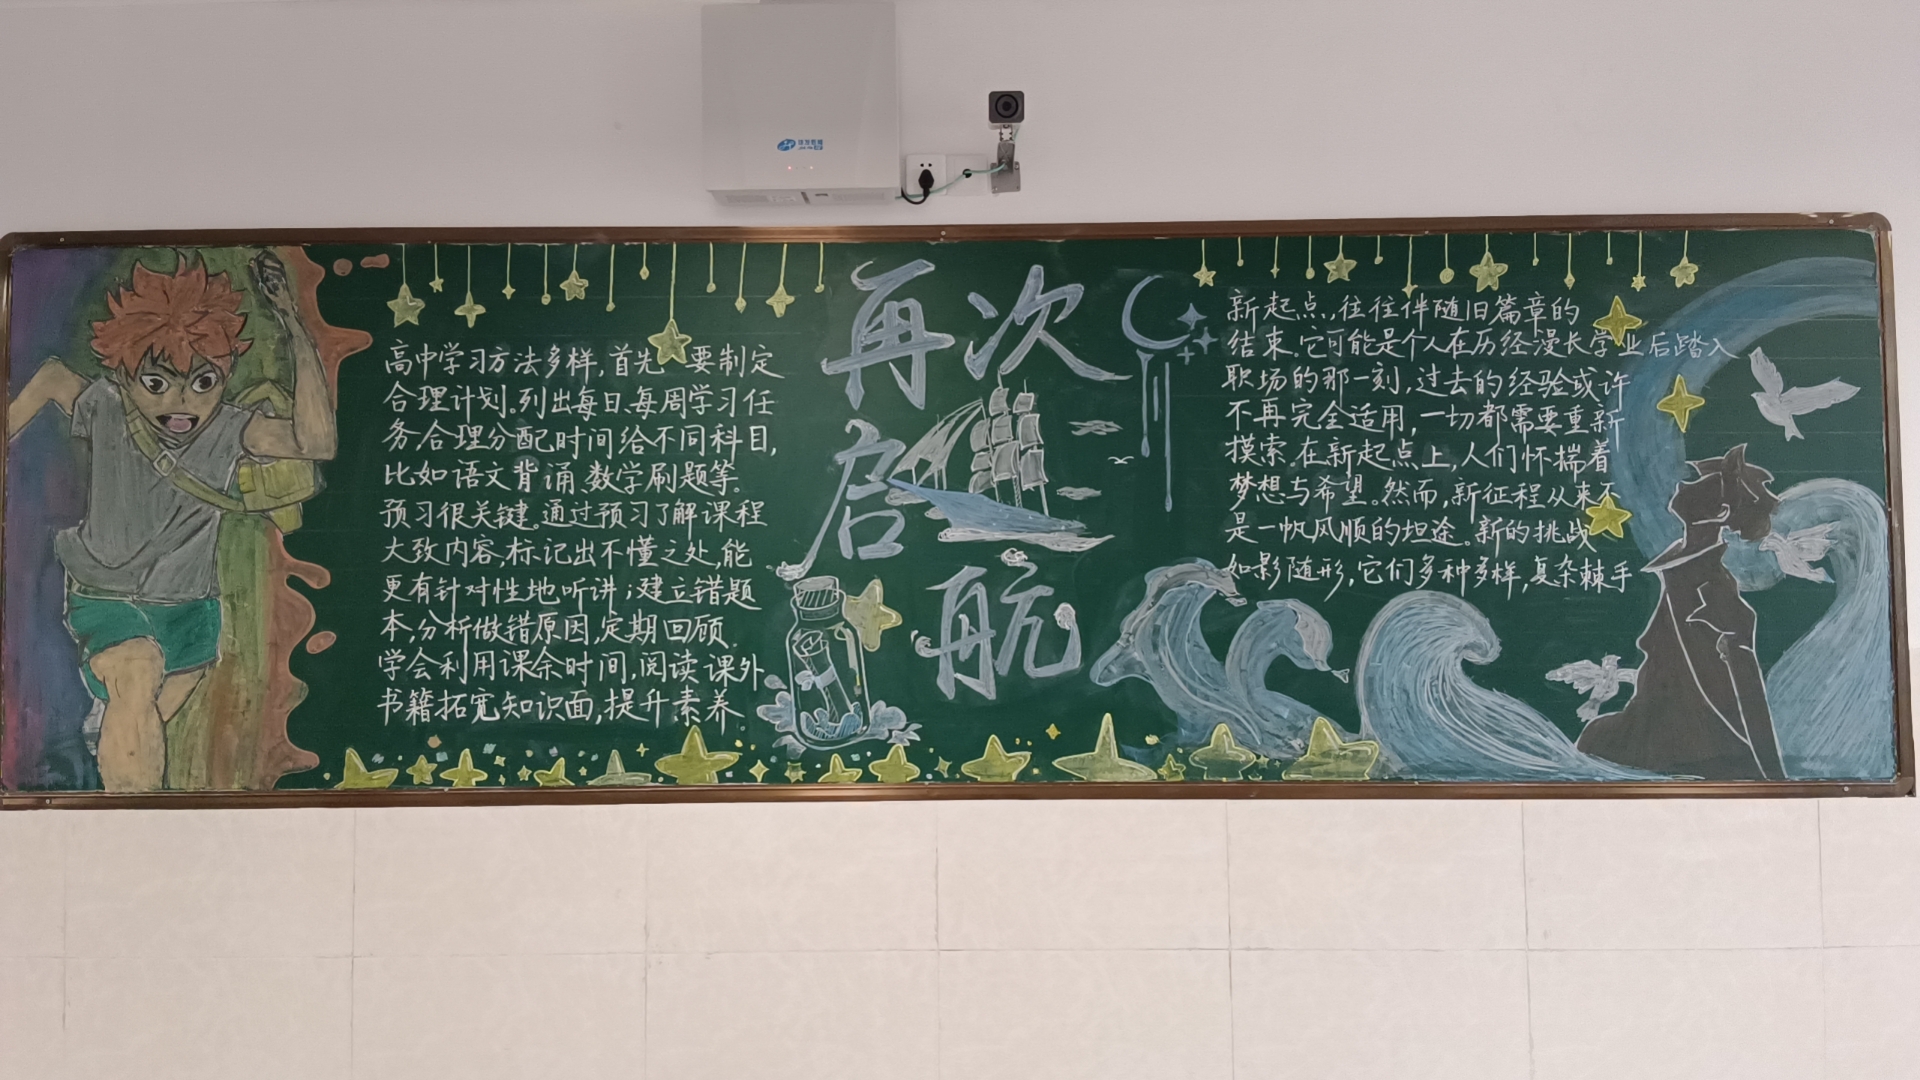 高中学习方法多样,首先要制定
合理计划。列出每日、每周学习任
务,合理分配时间给不同科目,
比如语文背诵、数学刷题等.
预习很关键。通过预习了解课程
大致内容,标记出不懂之处,能
更有针对性地听讲;建立错题
本,分析做错原因,定期回顾.
学会利用课余时间,阅读课外
书籍拓宽知识面,提升素养
再次
启
航
新起点,往往伴随旧篇章的
结束。它可能是个人在历经漫长学业后踏入
职场的那一刻,过去的经验或许
不再完全适用,一切都需要重新
摸索。在新起点上,人们怀揣着
梦想与希望。然而,新征程从来不
是一帆风顺的坦途。新的挑战
如影随形,它们多种多样,复杂棘手